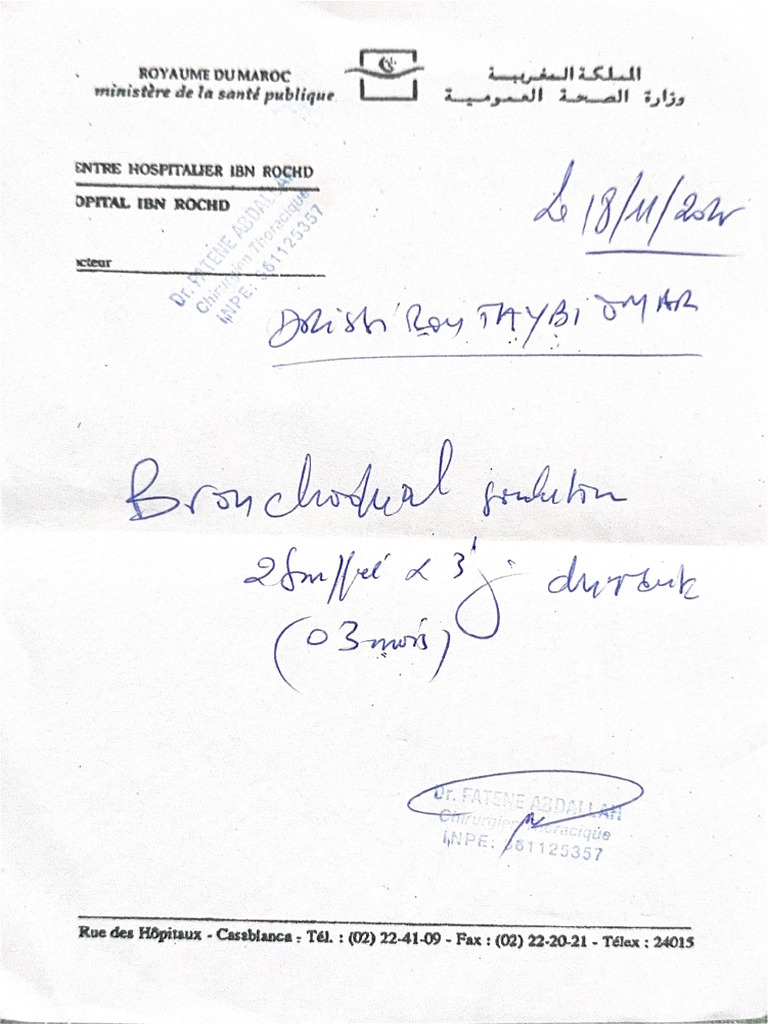 ROYAUME DU MAROC
ministère de la santé publique
المملكة المغربية
وزارة الصحة العمومية
ENTRE HOSPITALIER IBN ROCHD
OPITAL IBN ROCHD
cteur
Dr. FATENE ABDALLAH
Chirurgien Thoracique
INPE: 561125357
Le 18/11/20
TAYBI OMAR
Bronchodual
2 x 3 / j durant
(03 mois)
Dr. FATENE ABDALLAH
Chirurgien Thoracique
INPE: 561125357
Rue des Hôpitaux - Casablanca - Tél. : (02) 22-41-09 - Fax : (02) 22-20-21 - Télex : 24015